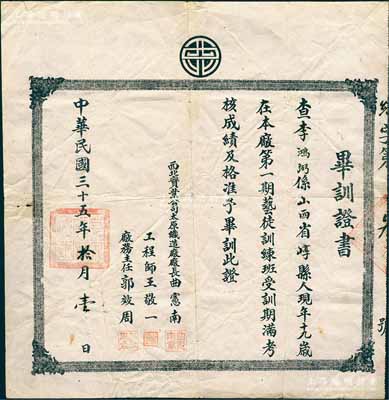 畢訓證書
查李鴻弼係山西省崞縣人現年十九歲
在本廠第一期藝徒訓練班受訓期滿考
核成績及格准予畢訓此證
西北實業公司太原織造廠廠長曲憲南
工程師王撥一
廠務主任郭效周
中華民國三十五年拾月壹日
號